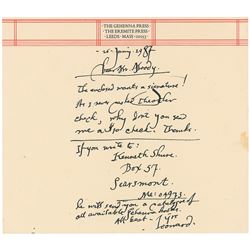 THE GEHENNA PRESS
THE EREMITE PRESS
LEEDS · MASS · 01053
Dear Mr. Moody.
The enclosed wants a signature!
As I now
check, why don't you send
me a check. Thanks.
If you write to:
Kenneth Shure.
Box 57.
Searsmont.
ME: 04973.
he will send you a catalogue of
all available Gehenna books.
All best - Yrs
Leonard.